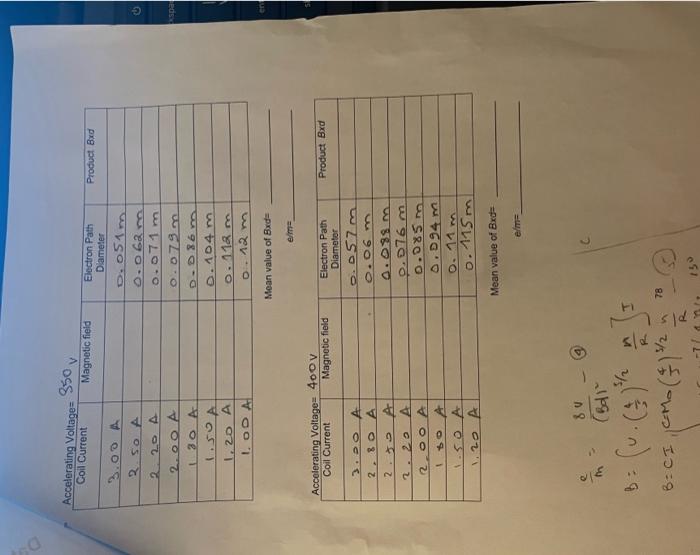 Accelerating Voltage= 350 V
Coil Current Magnetic field Electron Path Diameter Product Bxd
3.00 A 0.051 m
2.50 A 0.062 m
2.20 A 0.071 m
2.00 A 0.079 m
1.80 A 0.086 m
1.50 A 0.104 m
1.20 A 0.112 m
1.00 A 0.12 m
Mean value of Bxd=
e/m=
Accelerating Voltage= 400 V
Coil Current Magnetic field Electron Path Diameter Product Bxd
3.00 A 0.057 m
2.80 A 0.06 m
2.50 A 0.088 m
2.20 A 0.076 m
2.00 A 0.085 m
1.80 A 0.094 m
1.50 A 0.11 m
1.20 A 0.115 m
Mean value of Bxd=
e/m=
e/m = 8V/(Bd)² - ④
B = (u. (4/5)^3/2 n/R] I
B = CI, C = M₀ (4/5)^3/2 n/R - ⑤
78